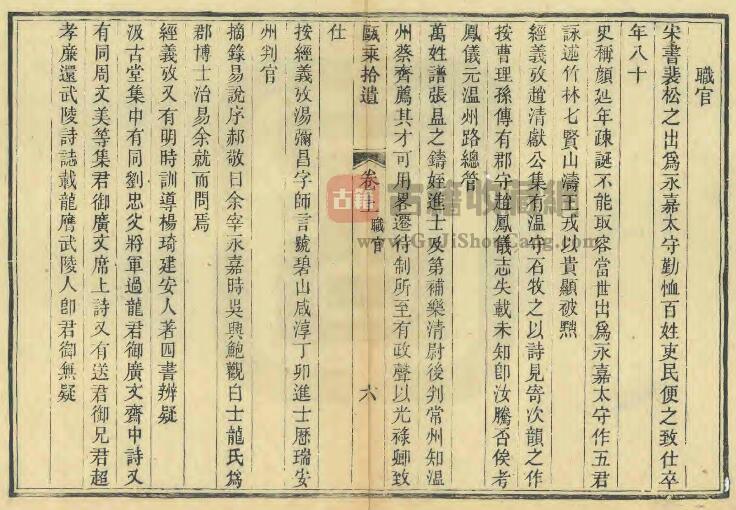 職官
宋書裴松之出爲永嘉太守勤恤百姓吏民便之致仕卒
年八十
史稱顔延年疎誕不能取容當世出爲永嘉太守作五君
詠述竹林七賢山濤王戎以貴顯被黜
經義攷趙清獻公集有溫守石牧之以詩見寄次韻之作
按曹理孫傳有郡守趙鳳儀志失載未知卽汝騰否俟考
鳳儀元溫州路總管
萬姓譜張昷之鑄姪進士及第補樂清尉後判常州知溫
州蔡齊薦其才可用畧遷待制所至有政聲以光祿卿致
仕
甌乘拾遺
卷上
職官
六
按經義攷湯彌昌字師言號碧山咸淳丁卯進士歷瑞安
州判官
摘錄易說序郝敬曰余宰永嘉時吳興鮑觀白士龍氏爲
郡博士治易余就而問焉
經義攷又有明時訓導楊琦建安人著四書辨疑
汲古堂集中有同劉忠父將軍過龍君御廣文齋中詩又
有同周文美等集君御廣文席上詩又有送君御兄君超
孝廉還武陵詩誌載龍膺武陵人卽君御無疑
古籍
古籍收藏網
www.GuJiShouCang.com